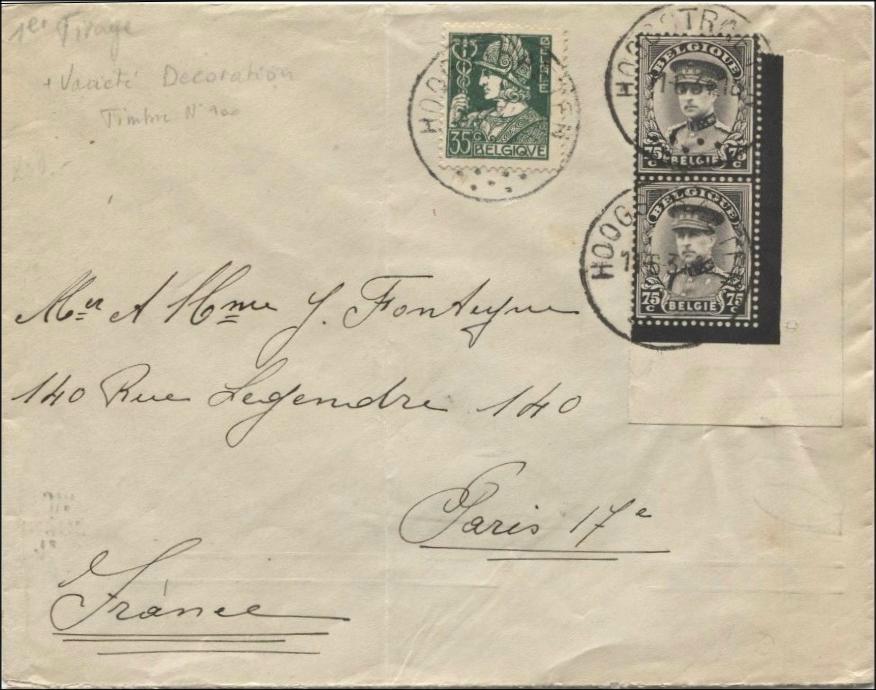 1er Tirage
+ Varieté Decoration
Timbre N° 
35
BELGIQUE
35 BELGIQVE
HOOGSTRATEN
BELGIQUE
75 C BELGIË 75 C
HOOGSTR
BELGIQUE
75 C BELGIË 75 C
HOOGS
Mr et Mme J. Fonteyne
140 Rue Legendre 140
Paris 17e
France